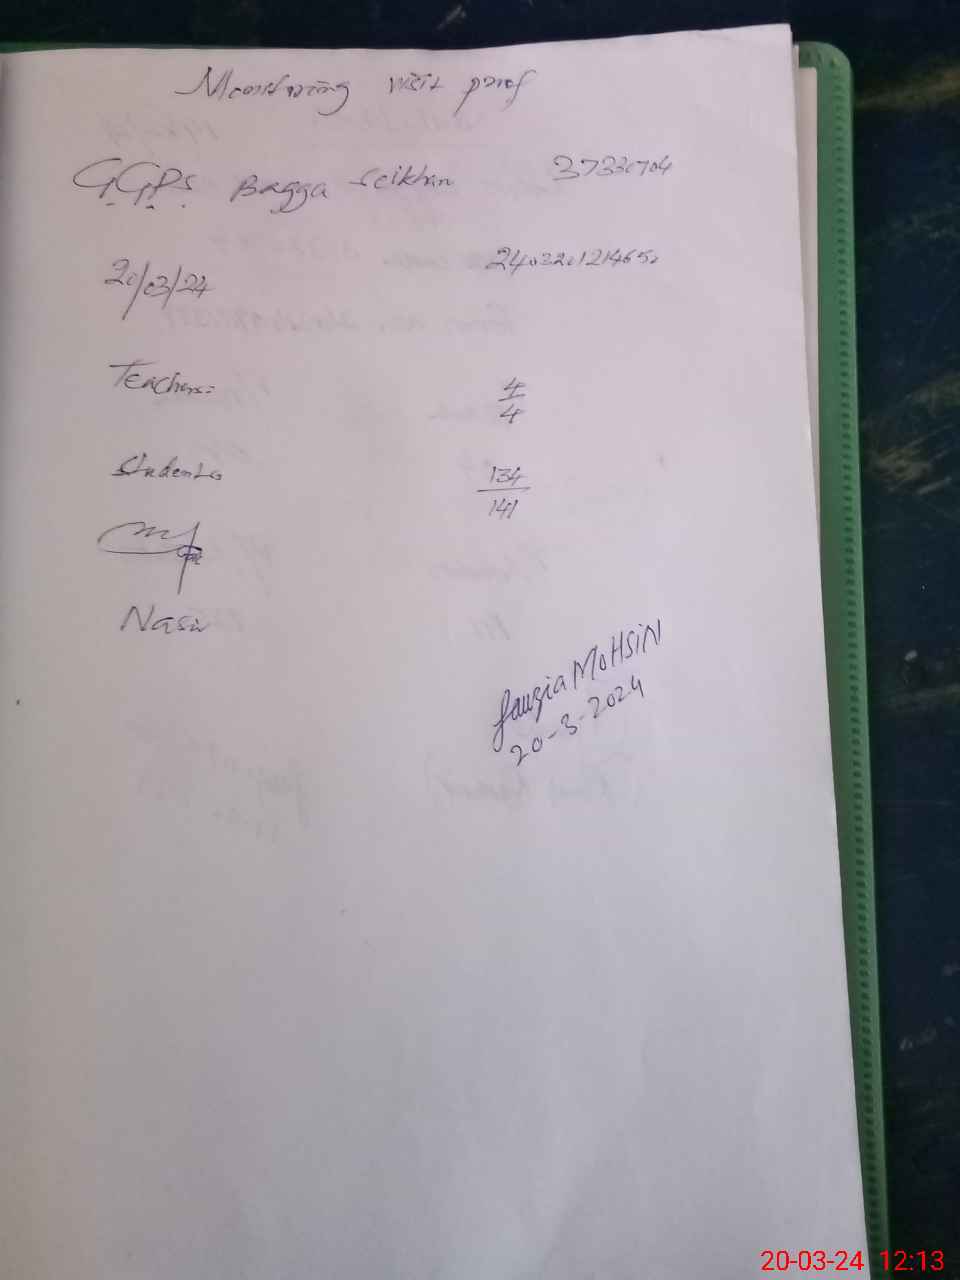 Monitoring visit proof
G.G.P.S Bagga Seikhan 37330704
20/03/24 2403201214650
Teachers:- 4/4
Students 134/141
Nasir
Fauzia MOHSiN
20-3-2024
20-03-24 12:13